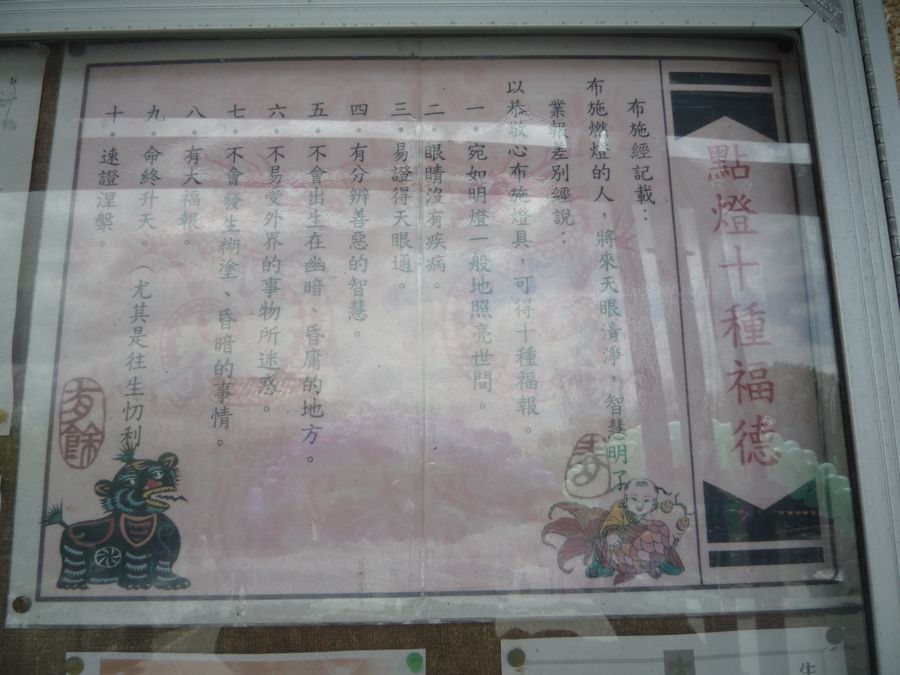 點燈十種福德
布施經記載：
布施燃燈的人，將來天眼清淨，智慧明
業報差別經說：
以恭敬心布施燈具，可得十種福報。
一．宛如明燈一般地照亮世間。
二．眼睛沒有疾病。
三．易證得天眼通。
四．有分辨善惡的智慧。
五．不會出生在幽暗、昏庸的地方。
六．不易受外界的事物所迷惑。
七．不會發生糊塗、昏暗的事情。
八．有大福報。
九．命終升天。（尤其是往生忉利
十．速證涅槃。
有餘